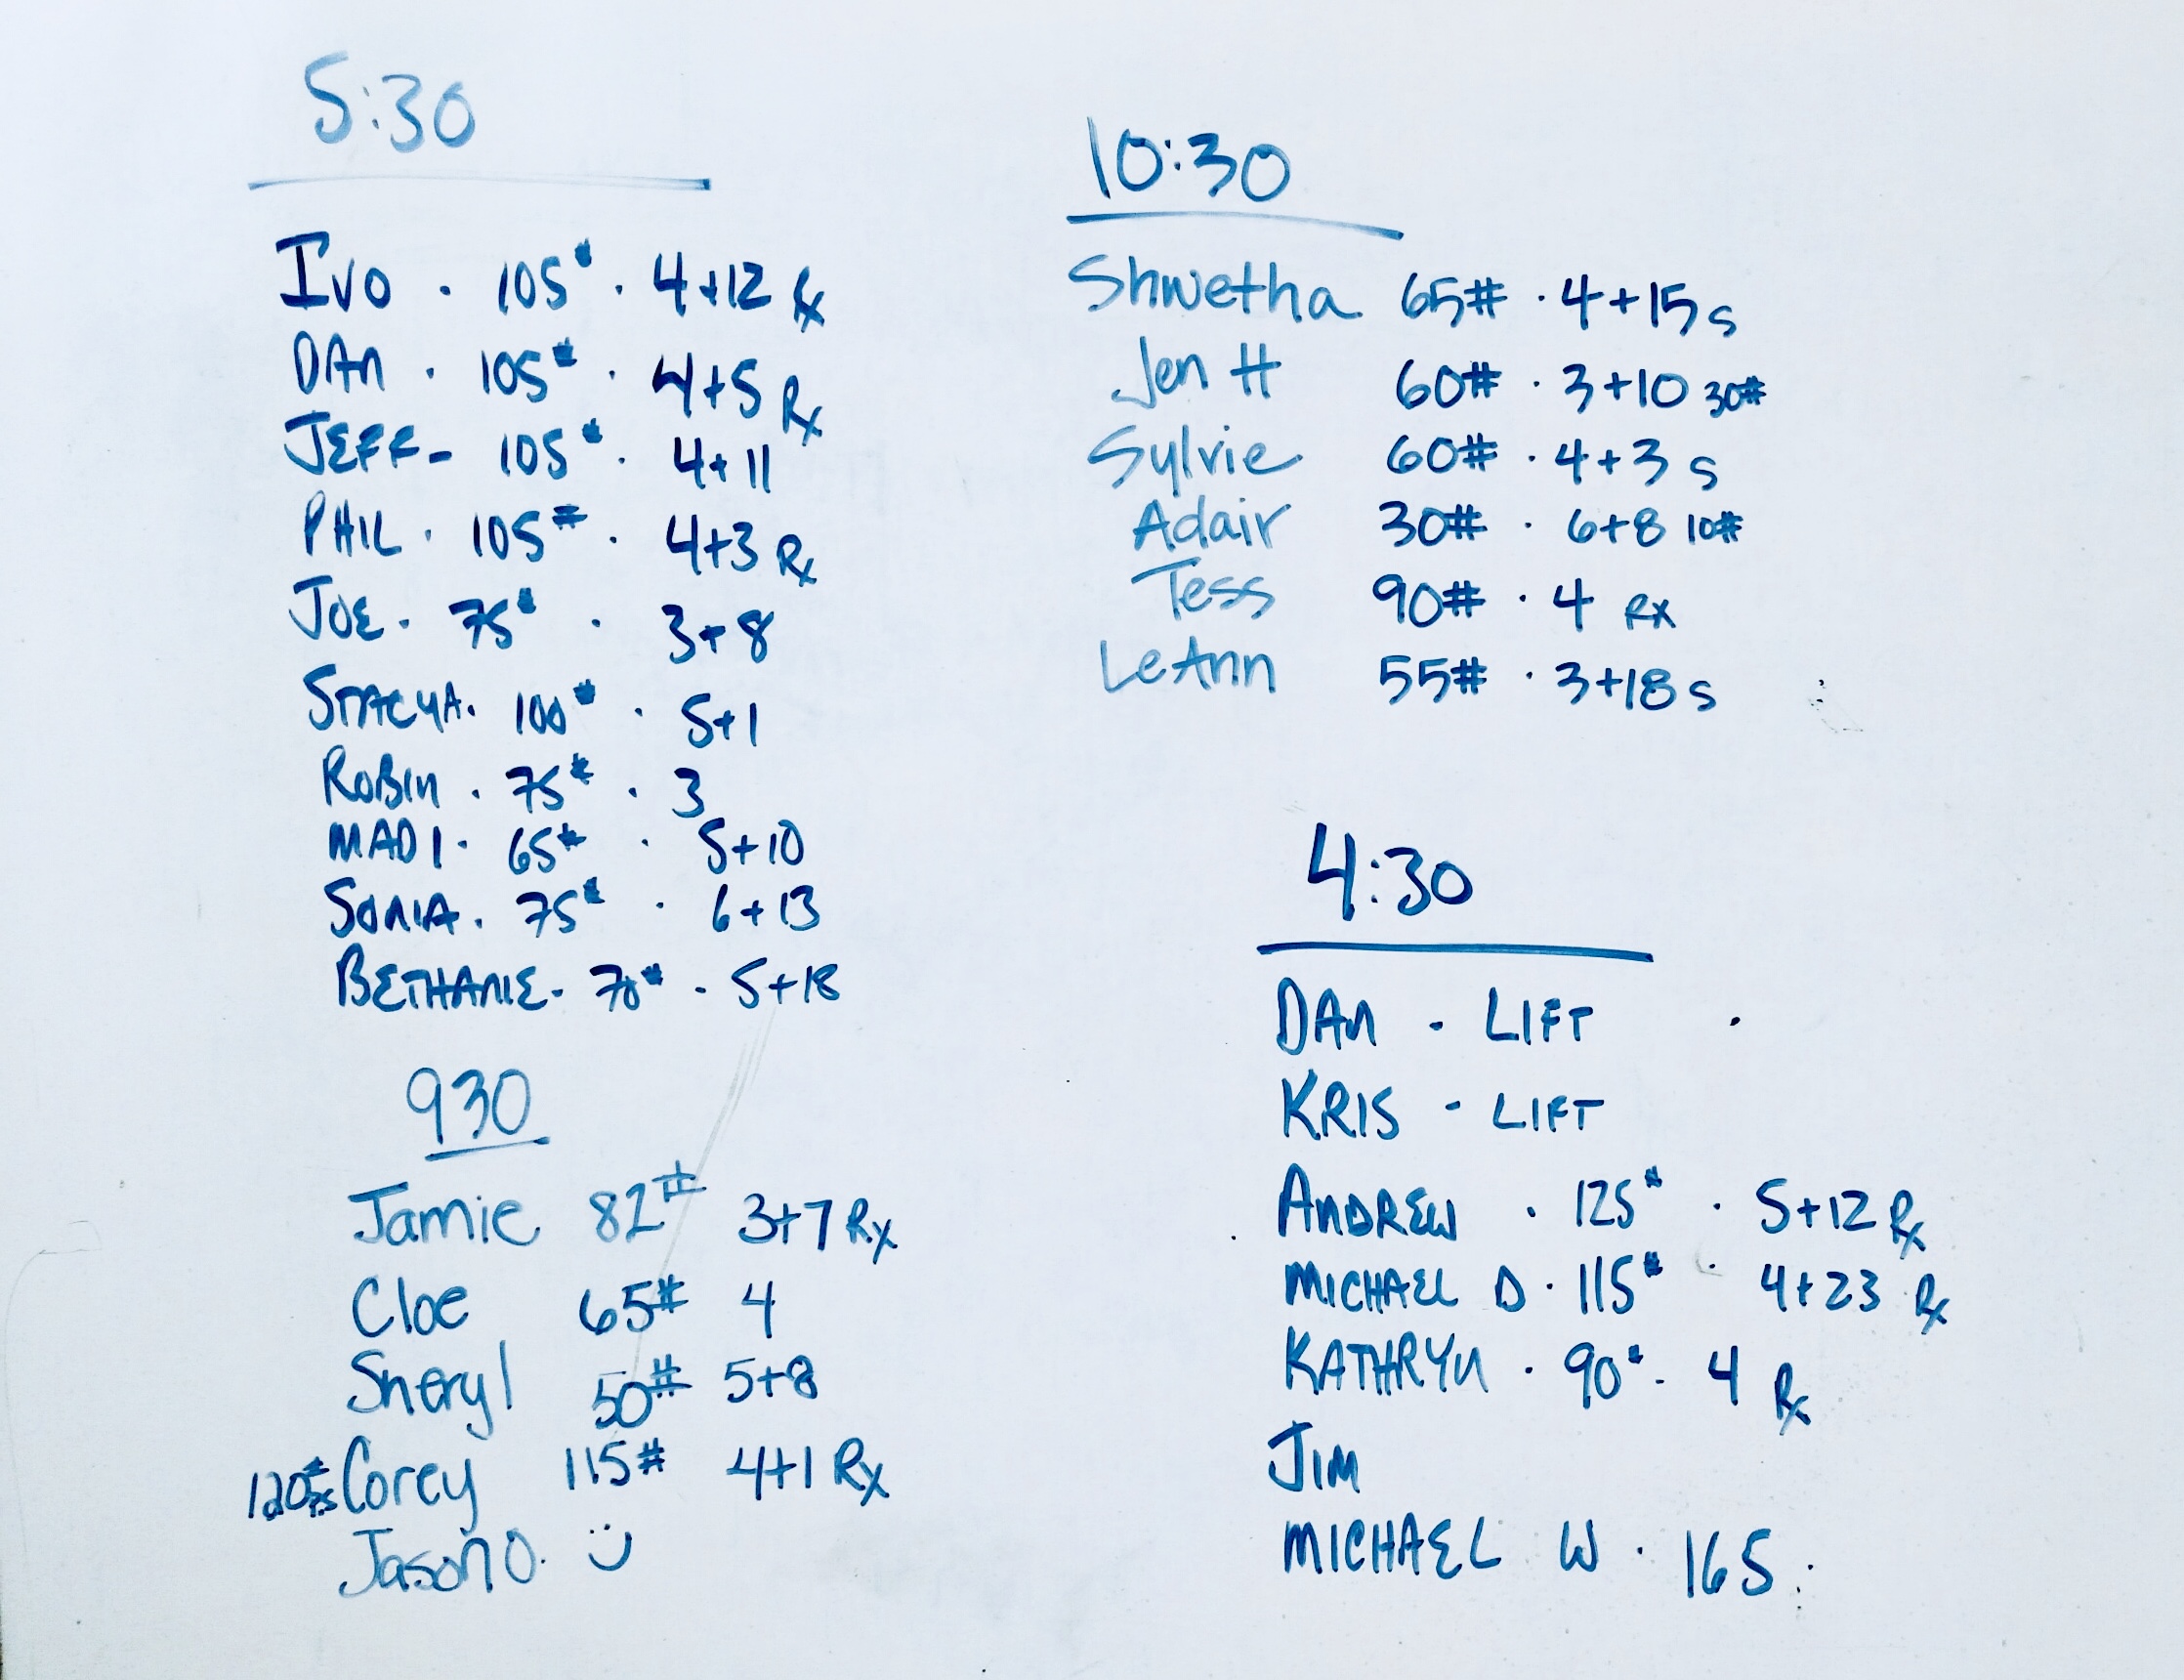 5:30
IVO · 105# · 4+12 Rx
DAN · 105# · 4+5 Rx
JEFF - 105# · 4+11
PHIL · 105# · 4+3 Rx
JOE · 75# · 3+8
STACY A. 100# · 5+1
ROBIN · 75# · 3
MADI · 65# · 5+10
SONIA · 75# · 6+13
BETHANIE - 70# - 5+18
930
Jamie 82# 3+7 Rx
Cloe 65# 4
Sheryl 50# 5+8
120# Corey 115# 4+1 Rx
Jason O.
10:30
Shwetha 65# · 4+15 s
Jen H 60# · 3+10 30#
Sylvie 60# · 4+3 s
Adair 30# · 6+8 10#
Tess 90# · 4 Rx
LeAnn 55# · 3+18 s
4:30
DAN - LIFT
KRIS - LIFT
ANDREW · 125# · 5+12 Rx
MICHAEL D · 115# · 4+23 Rx
KATHRYN · 90# - 4 Rx
JIM
MICHAEL W · 165